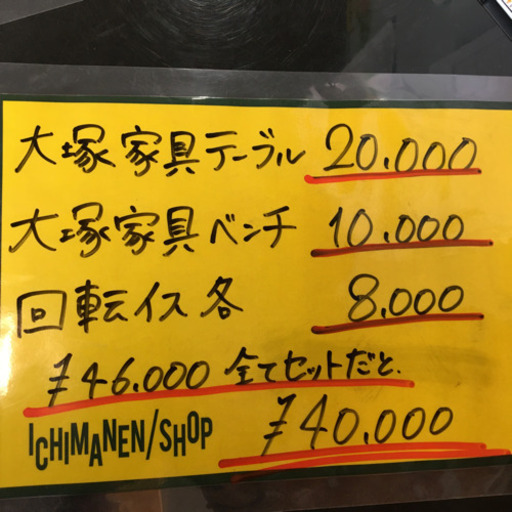 大塚家具テーブル 20.000
大塚家具ベンチ 10.000
回転イス各 8.000
¥46.000 全てセットだと.
ICHIMANEN/SHOP ¥40.000